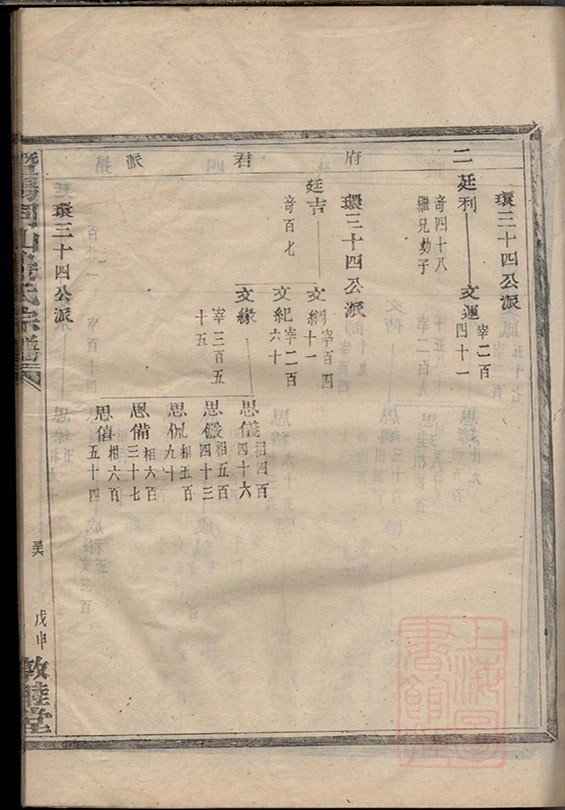 環三十四公派
二
廷利
奇四十八
繼兄勍子
文運
宰二百
四十一
府
環三十四公派
廷吉
奇百七
文綱
宰百四
十一
文紀
宰二百
六十
君
文緣
宰三百五
十五
思儀
相四百
四十六
思儼
相五百
四十三
思侃
相五百
九十
思備
相六百
三十七
思僖
相六百
五十四
派
環三十四公派
宗譜
戊申
敦睦堂
上海圖
書館藏